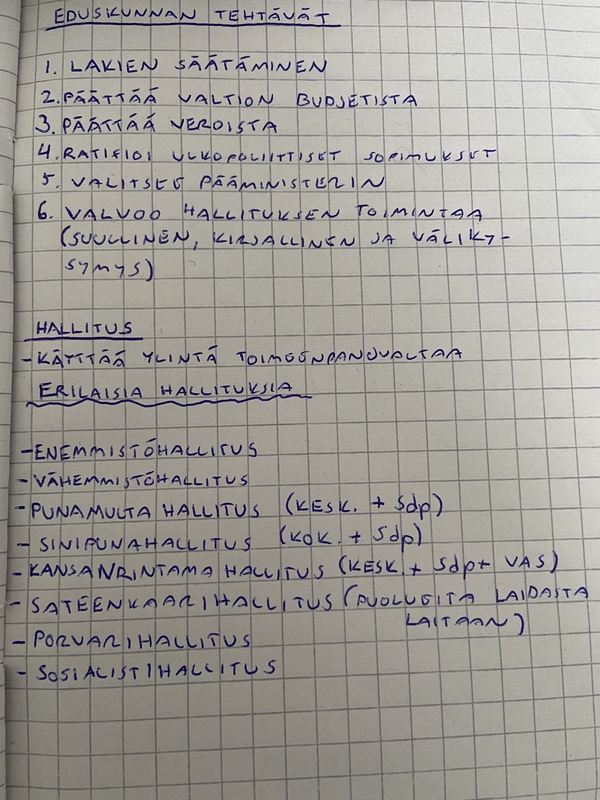 EDUSKUNNAN TEHTÄVÄT
1. LAKIEN SÄÄTÄMINEN
2. PÄÄTTÄÄ VALTION BUDJETISTA
3. PÄÄTTÄÄ VEROISTA
4. RATIFIOI ULKOPOLIITTISET SOPIMUKSET
5. VALITSEE PÄÄMINISTERIN
6. VALVOO HALLITUKSEN TOIMINTAA
(SUULLINEN, KIRJALLINEN JA VÄLIKY-
SYMYS)
HALLITUS
- KÄYTTÄÄ YLINTÄ TOIMEENPANOVALTAA
ERILAISIA HALLITUKSIA
- ENEMMISTÖHALLITUS
- VÄHEMMISTÖHALLITUS
- PUNAMULTA HALLITUS (KESK. + Sdp)
- SINIPUNAHALLITUS (KOK. + Sdp)
- KANSANRINTAMA HALLITUS (KESK. + Sdp + VAS)
- SATEENKAARIHALLITUS (PUOLUEITA LAIDASTA
LAITAAN)
- PORVARIHALLITUS
- SOSIALISTIHALLITUS